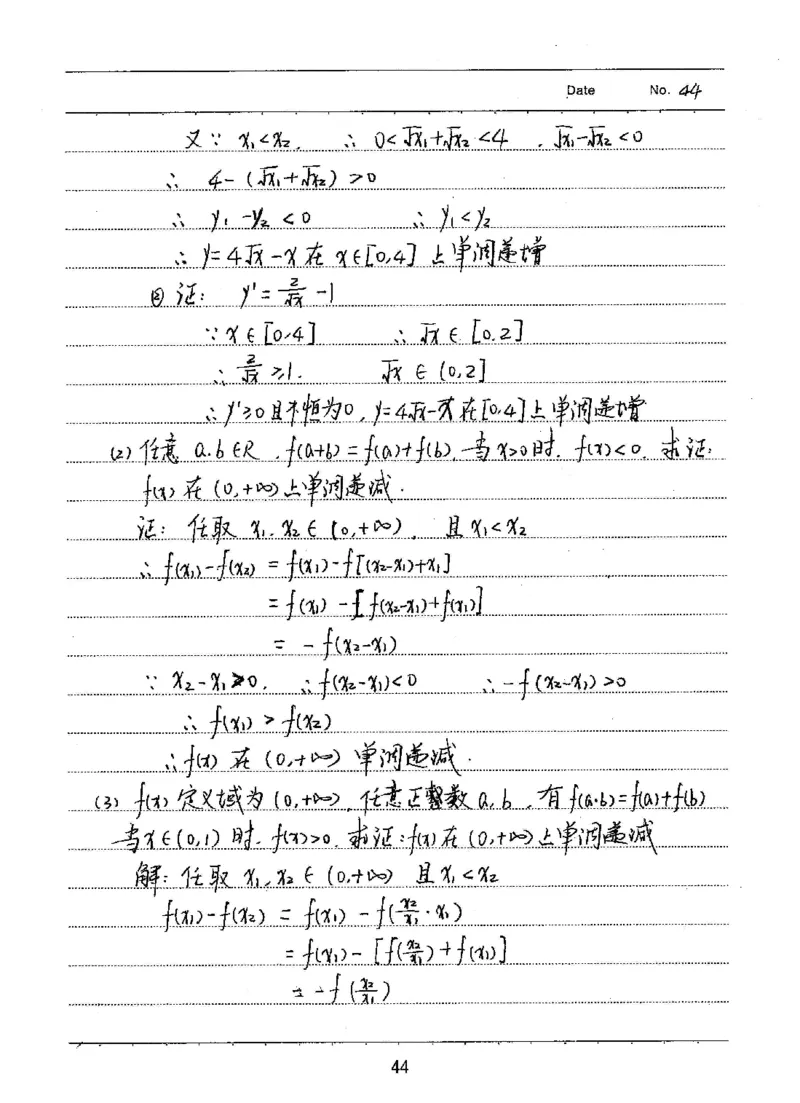 Date No. 44
又∵ x₁<x₂, ∴ 0<√x₁+√x₂<4 , √x₁-√x₂<0
∴ 4-(√x₁+√x₂)>0
∴ y₁-y₂<0 ∴ y₁<y₂
∴ y=4√x-x 在 x∈[0,4] 上单调递增
② 证: y'=2/√x -1
∵ x∈[0,4] ∴ √x∈[0,2]
∴ 2/√x ≥1. √x∈(0,2]
∴ y'≥0且不恒为0, y=4√x-x在[0,4]上单调递增
(2) 任意 a.b∈R , f(a+b)=f(a)+f(b), 当x>0时, f(x)<0. 求证:
f(x)在(0,+∞)上单调递减.
证: 任取 x₁.x₂∈(0,+∞), 且x₁<x₂
∴ f(x₁)-f(x₂) = f(x₁)-f[(x₂-x₁)+x₁]
= f(x₁)-[f(x₂-x₁)+f(x₁)]
= -f(x₂-x₁)
∵ x₂-x₁>0, ∴ f(x₂-x₁)<0 ∴ -f(x₂-x₁)>0
∴ f(x₁)>f(x₂)
∴ f(x)在(0,+∞)单调递减.
(3) f(x)定义域为(0,+∞), 任意正整数a,b , 有f(a·b)=f(a)+f(b)
当x∈(0,1)时, f(x)>0. 求证:f(x)在(0,+∞)上单调递减
解: 任取 x₁,x₂∈(0,+∞) 且x₁<x₂
f(x₁)-f(x₂) = f(x₁)-f(x₂/x₁·x₁)
= f(x₁)-[f(x₂/x₁)+f(x₁)]
= -f(x₂/x₁)
44